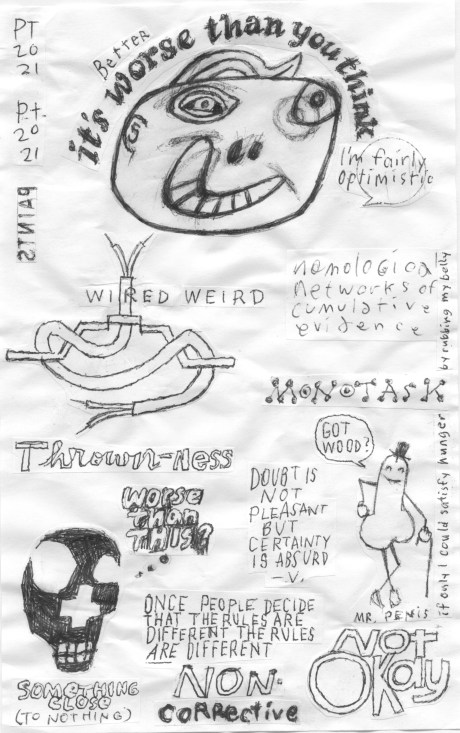 PT
20
21
P.t.
20
21
PAINTS
BETTER
it's worse than you think
(5)
I'm fairly
optimistic
WIRED WEIRD
nomological
networks of
cumulative
evidence
MONOTASK
if only I could satisfy hunger by rubbing my belly
Thrown-ness
GOT
WOOD?
worse
than
THIS?
DOUBT IS
NOT
PLEASANT
BUT
CERTAINTY
IS ABSURD
-V.
MR. PENIS
ONCE PEOPLE DECIDE
THAT THE RULES ARE
DIFFERENT THE RULES
ARE DIFFERENT
SOMETHING
CLOSE
(TO NOTHING)
NON-
CORRECTIVE
NOT
OKay